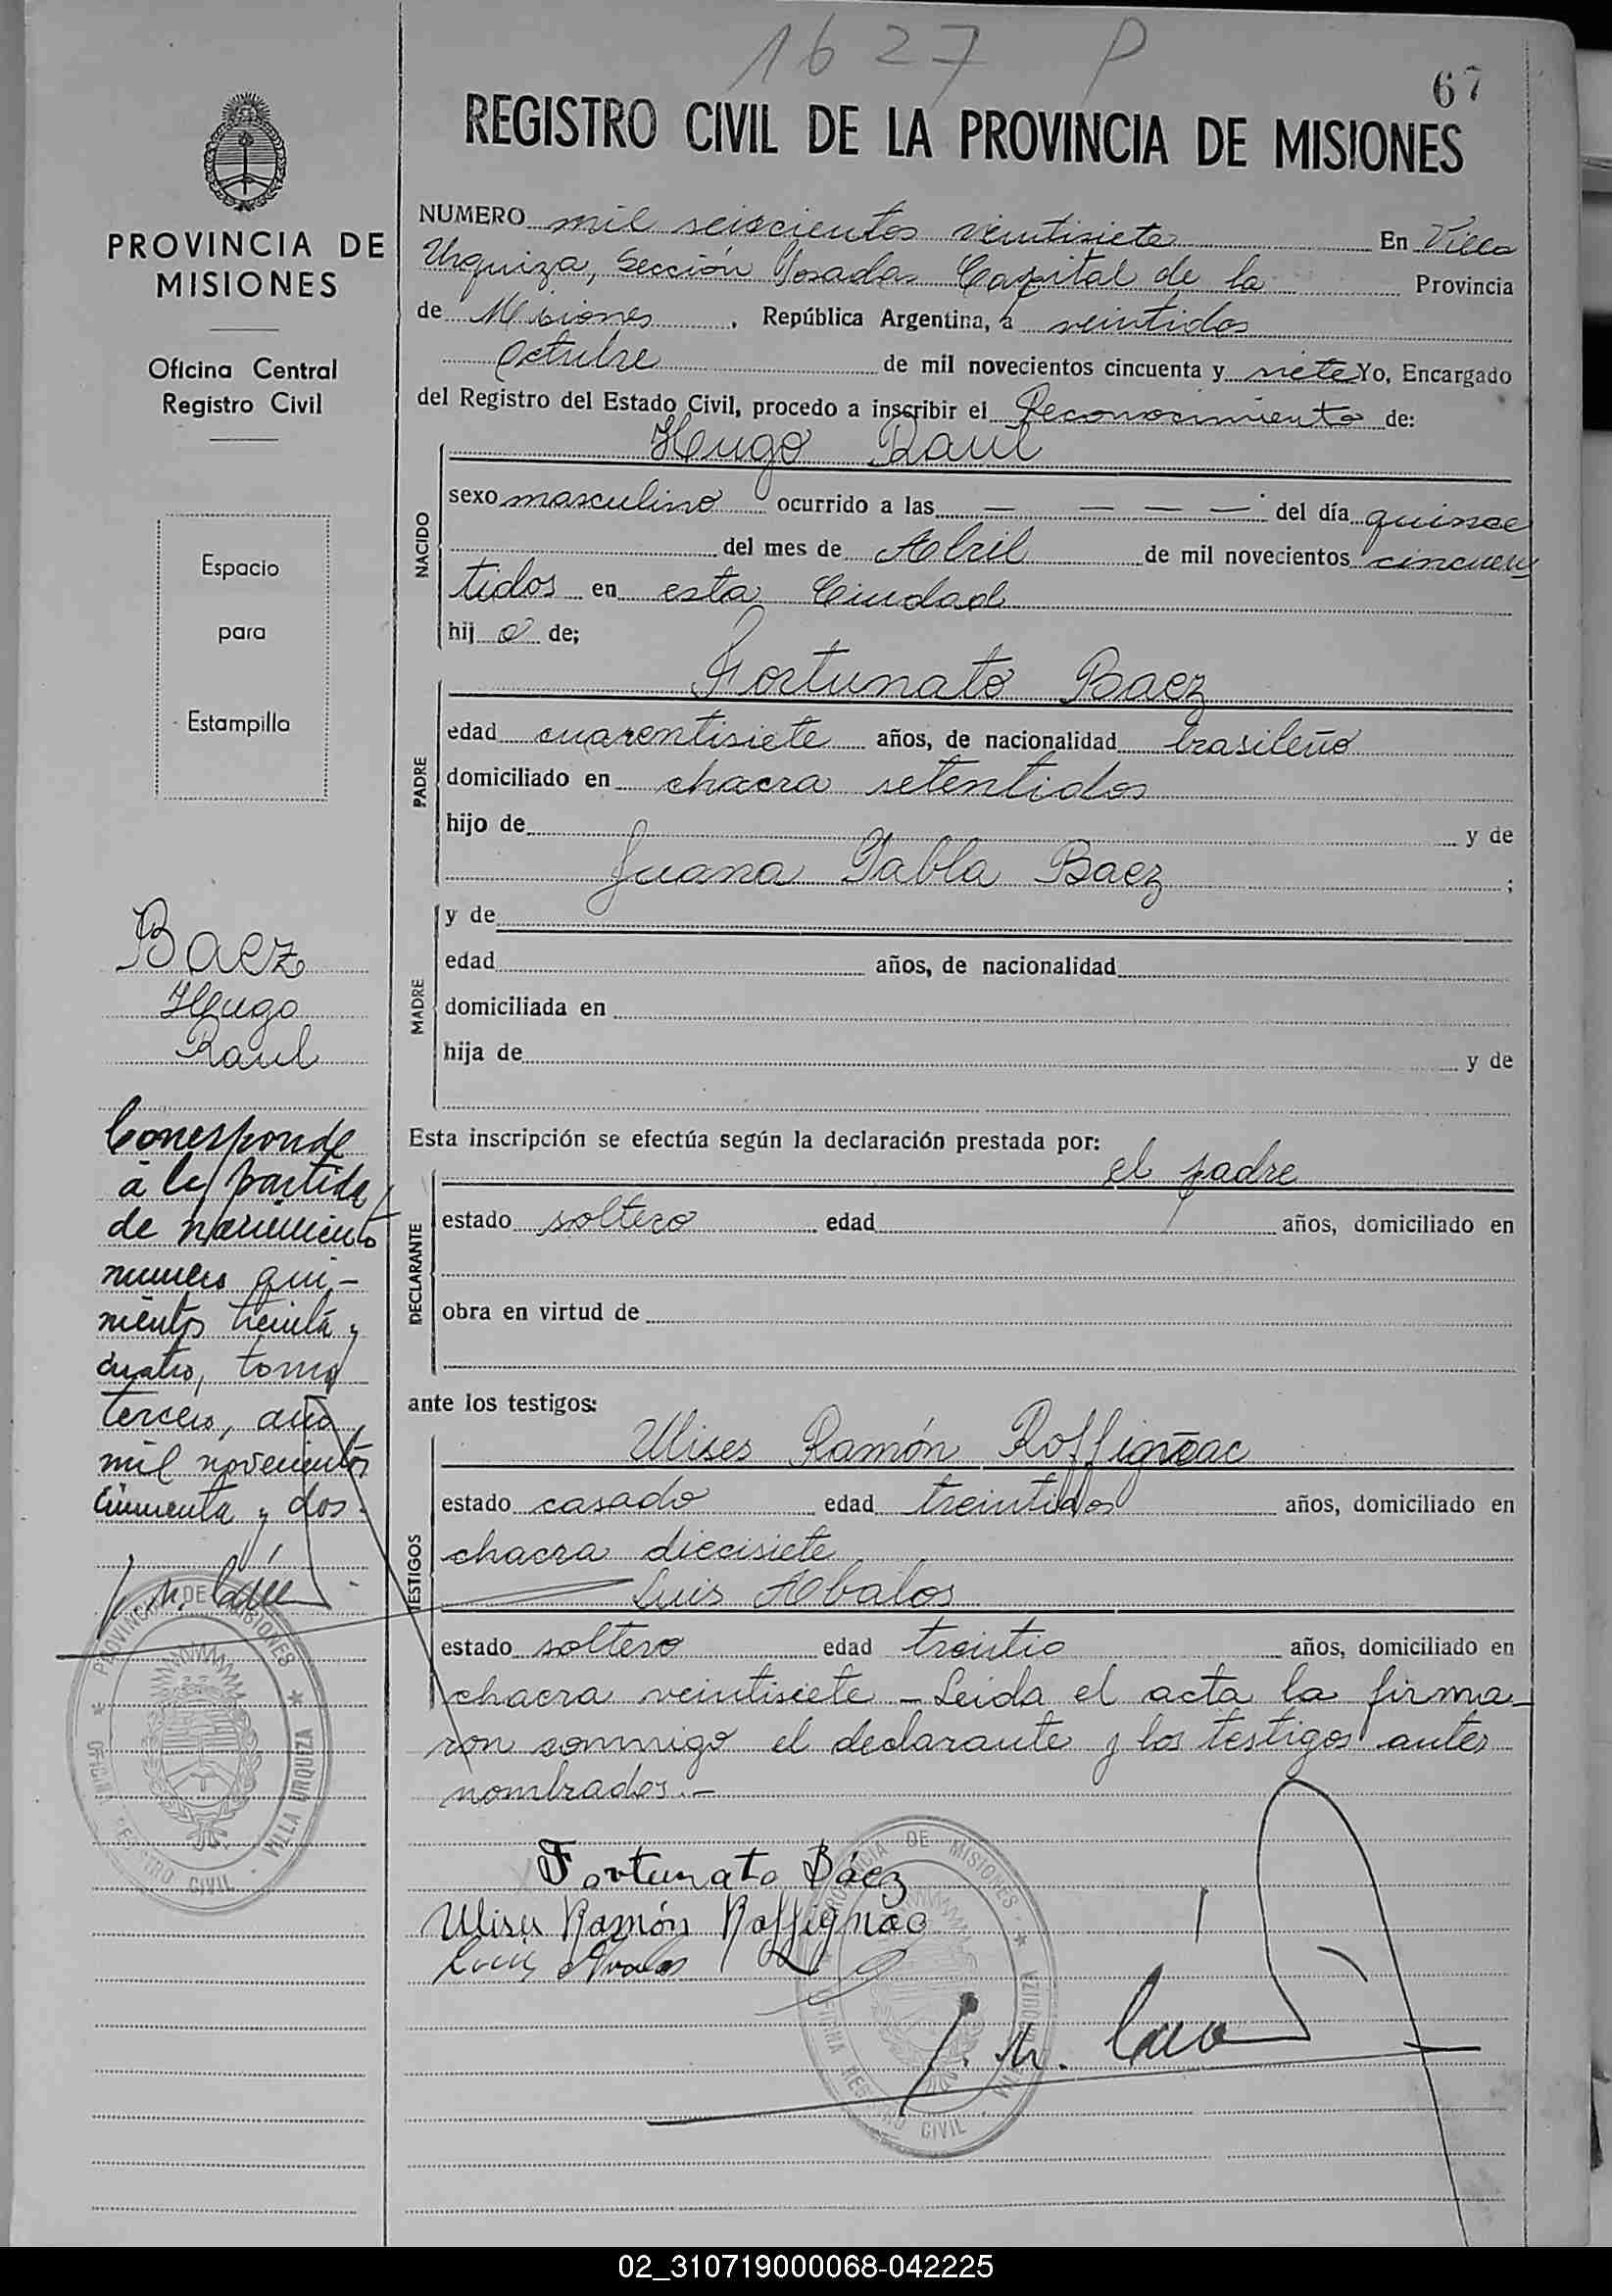 1627 P
67
REGISTRO CIVIL DE LA PROVINCIA DE MISIONES
PROVINCIA DE
MISIONES
Oficina Central
Registro Civil
Espacio
para
Estampilla
Baez
Hugo
Raul
Corresponde
a la partida
de nacimiento
numero qui-
nientos treinta y
cuatro, tomo
tercero, año
mil novecientos
cincuenta y dos.
PROVINCIA DE MISIONES
OFICINA REGISTRO CIVIL - VILLA URQUIZA
NUMERO mil seiscientos veintisiete En Villa
Urquiza, Sección Posadas Capital de la Provincia
de Misiones, República Argentina, a veintidos
Octubre de mil novecientos cincuenta y siete Yo, Encargado
del Registro del Estado Civil, procedo a inscribir el Reconocimiento de:
Hugo Raul
NACIDO
sexo masculino ocurrido a las — — — — del día quince
del mes de Abril de mil novecientos cincuen
tidos en esta Ciudad
hij o de;
Fortunato Baez
PADRE
edad cuarentisiete años, de nacionalidad brasileño
domiciliado en chacra setentidos
hijo de y de
Juana Pabla Baez ;
MADRE
y de
edad años, de nacionalidad
domiciliada en
hija de y de
Esta inscripción se efectúa según la declaración prestada por:
el padre
DECLARANTE
estado soltero edad años, domiciliado en
obra en virtud de
ante los testigos:
Ulises Ramón Roffignac
TESTIGOS
estado casado edad treintidos años, domiciliado en
chacra diecisiete
Luis Abalos
estado soltero edad treintio años, domiciliado en
chacra veintisiete - Leida el acta la firma-
ron conmigo el declarante y los testigos antes
nombrados.-
Fortunato Báez
Ulises Ramón Roffignac
Luis Avalos
PROVINCIA DE MISIONES
OFICINA REGISTRO CIVIL - VILLA URQUIZA
02_310719000068-042225